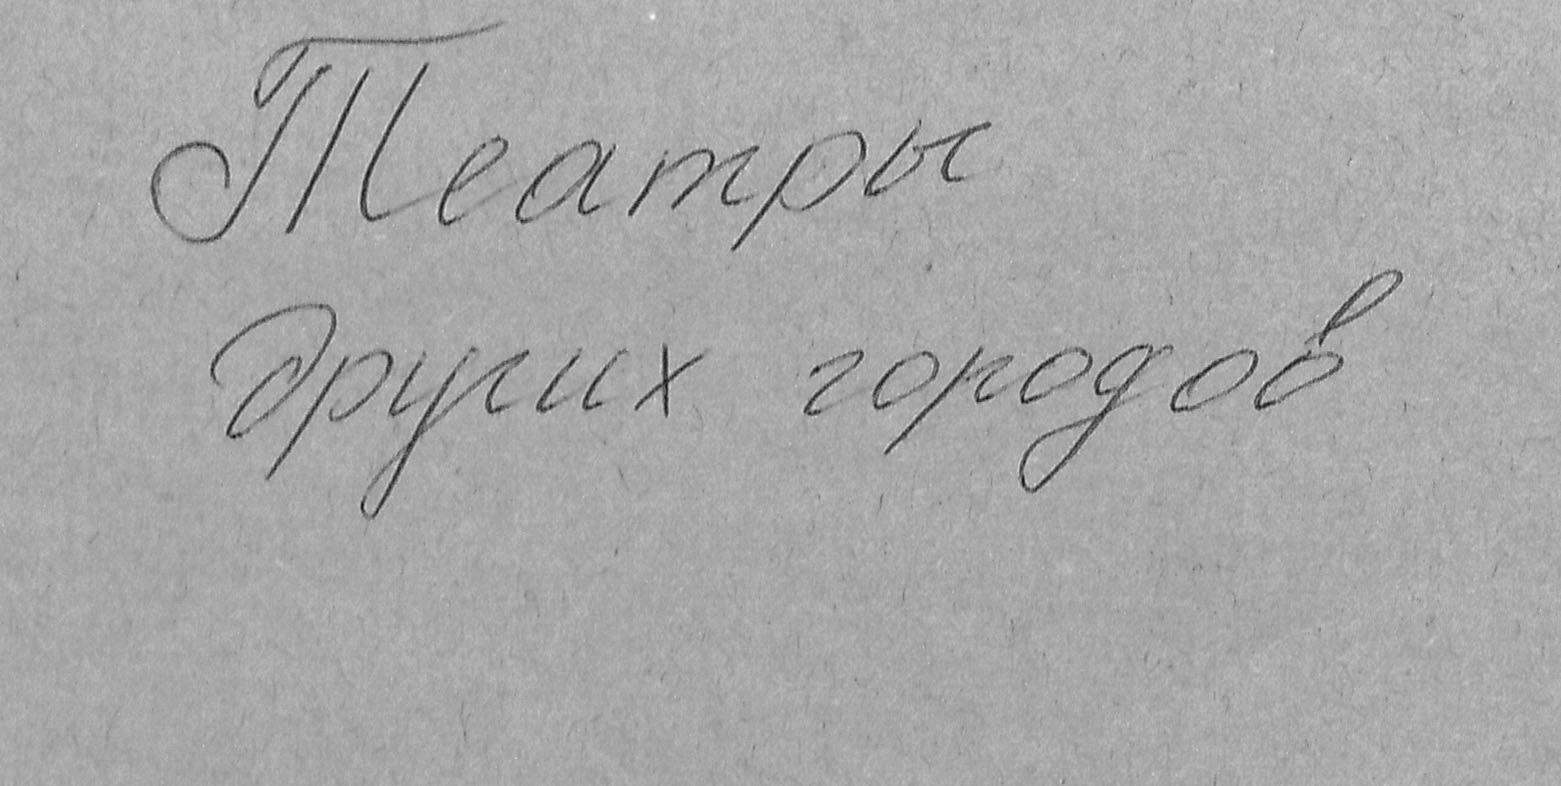 Театры
других городов